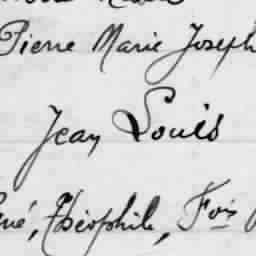 Pierre Marie Joseph
Jean Louis
Théophile, Fois